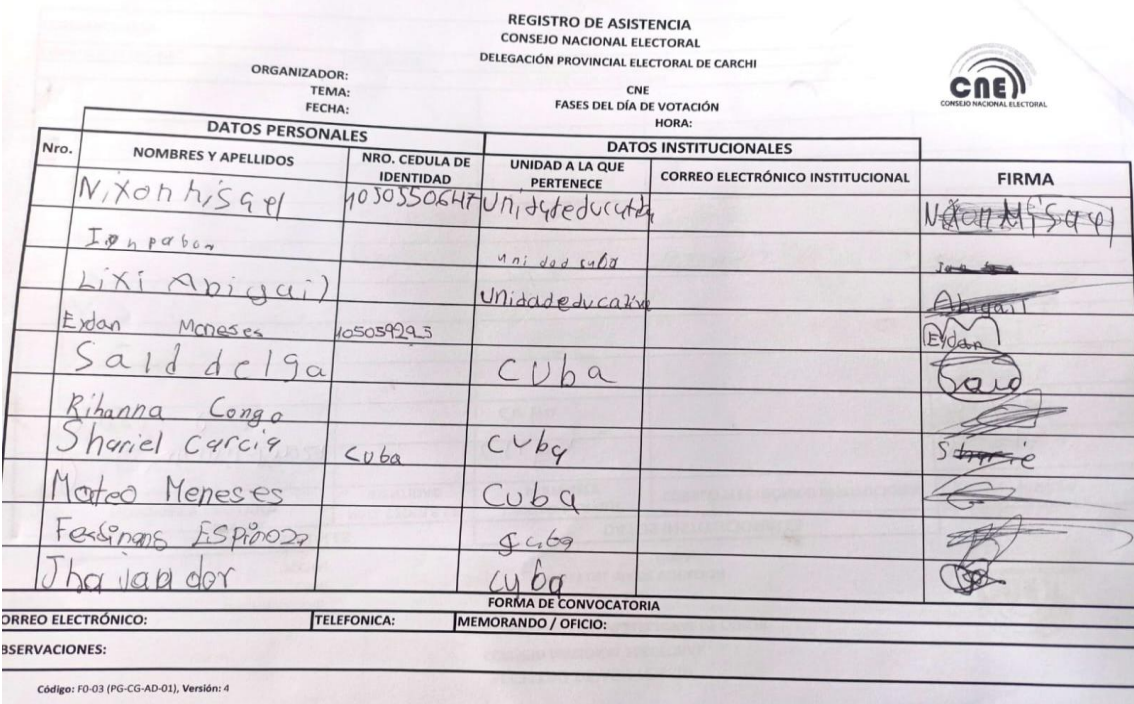 REGISTRO DE ASISTENCIA
CONSEJO NACIONAL ELECTORAL
DELEGACIÓN PROVINCIAL ELECTORAL DE CARCHI
CNE
CONSEJO NACIONAL ELECTORAL
ORGANIZADOR: CNE
TEMA: FASES DEL DÍA DE VOTACIÓN
FECHA: HORA:
DATOS PERSONALES DATOS INSTITUCIONALES
Nro. NOMBRES Y APELLIDOS NRO. CEDULA DE IDENTIDAD UNIDAD A LA QUE PERTENECE CORREO ELECTRÓNICO INSTITUCIONAL FIRMA
Nixon Misael 1050550647 Nixon Misael
unidad cuba
Lixi Abigail Unidadeducative Abigail
Eydan Meneses 105059293 Eydan
Said delga Cuba Said
Rihanna Congo
Shariel Garcia Cuba Cuba
Mateo Meneses Cuba
Espinoza
cuba
FORMA DE CONVOCATORIA
ORREO ELECTRÓNICO: TELEFONICA: MEMORANDO / OFICIO:
BSERVACIONES:
Código: F0-03 (PG-CG-AD-01), Versión: 4